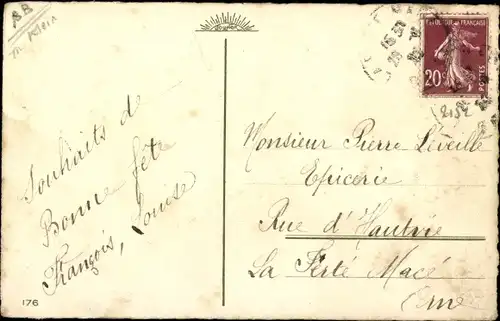 AB
Souhaits de
Bonne fête
François, Louise
176
REPUBLIQUE FRANÇAISE
20c
POSTES
15 30
2152
Monsieur Pierre Léveillé
Epicerie
Rue d'Hautvie
La Ferté Macé
Orne